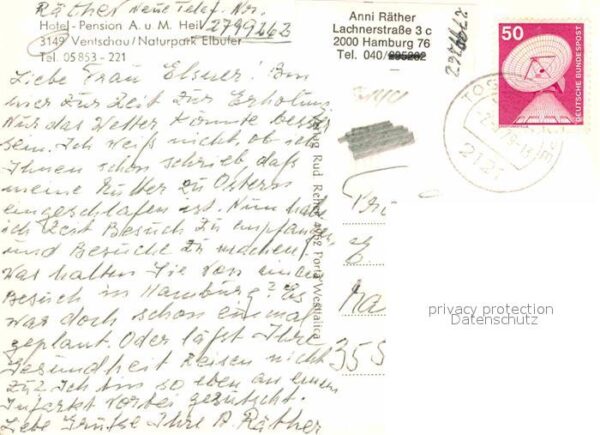 Räther Neue Telef. Nr.
Hotel-Pension A. u. M. Heil 2799262
3149 Ventschau/Naturpark Elbufer
Tel. 05853 - 221
Liebe Frau Elsner! Bin
hier zur Zeit zur Erholung
Nur das Wetter könnte besser
sein. Ich weiß nicht, ob ich
Ihnen schon schrieb, daß
meine Mutter zu Ostern
eingeschlafen ist. Nun habe
ich Zeit Besuch zu empfangen
und Besuche zu machen!
Was halten Sie von einem
Besuch in Hamburg? Es
war doch schon einmal
geplant. Oder läßt Ihre
Gesundheit Reisen nicht
zu? Ich bin so eben an einem
Infarkt vorbei gerutscht.
Liebe Grüße Ihre A. Räther
Verlag Rud Reher 4952 Porta Westfalica
Anni Räther
Lachnerstraße 3 c
2000 Hamburg 76
Tel. 040/695202
2799262
50
DEUTSCHE BUNDESPOST
TOS
2121
355
privacy protection
Datenschutz